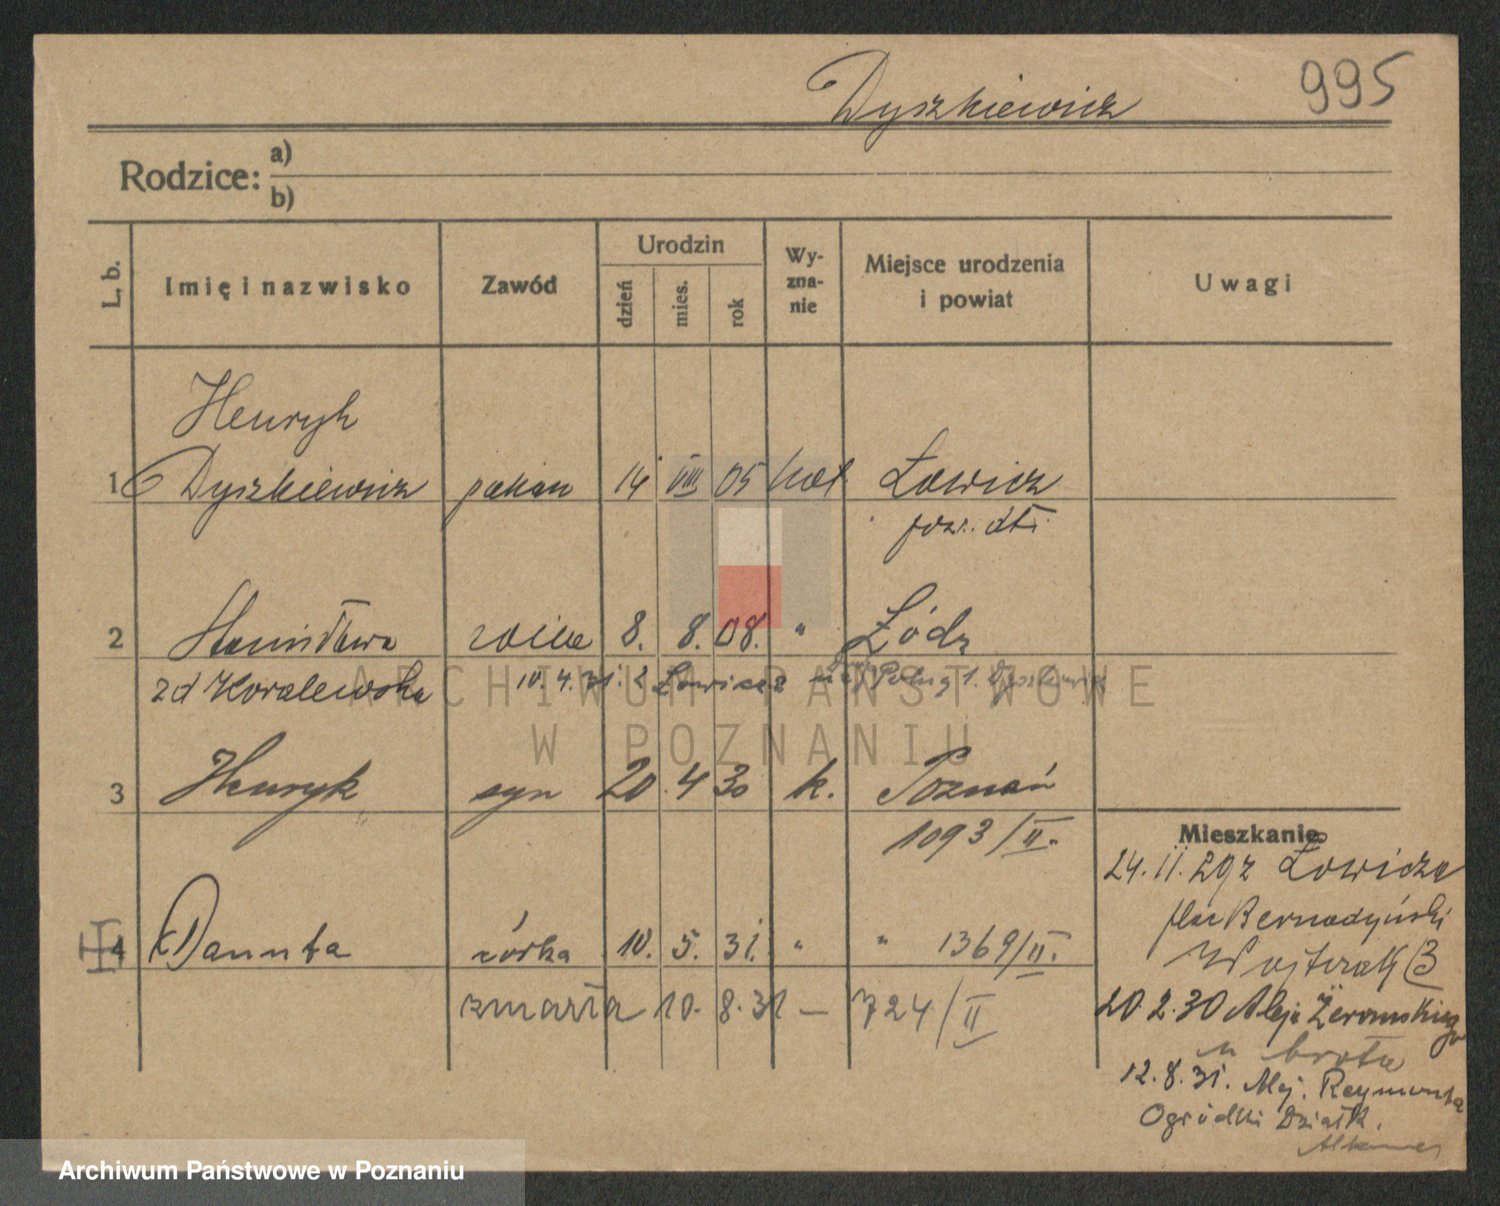 Dyszkiewicz 995
Rodzice: a)
b)
L. b. Imię i nazwisko Zawód Urodzin dzień mies. rok Wy-zna-nie Miejsce urodzenia i powiat Uwagi
Henryk
1 Dyszkiewicz 14 VIII 05 kat Łowicz
pow. dtt.
2 Stanisława żona 8. 8. 08. " Łódz
zd Kowalewska 10.4.31. z Łowicza
3 Henryk syn 20. 4 30 k. Poznań
1093/II.
Mieszkanie
24.II.29 z Łowicza
4 Danuta córka 10. 5. 31. " " 1369/II.
plac Bernadyński
zmarła 10. 8. 31 — 724/II
20.2.30 Aleja Żeromskiego
12.8.31. Alej. Reymonta
Ogródki Działk.
ARCHIWUM PAŃSTWOWE
W POZNANIU
Archiwum Państwowe w Poznaniu